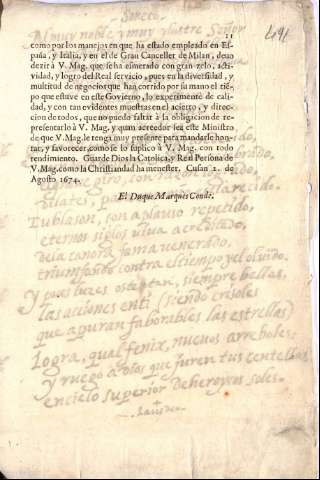 Soneto
Al muy noble, y muy ylustre Señor
491
11
como por los manejos en que ha estado empleado en Es-
paña, y Italia, y en el de Gran Canceller de Milan, deuo
dezir à V. Mag. que se ha esmerado con gran zelo, acti-
vidad, y logro del Real servicio, pues en la diversidad, y
multitud de negocios que han corrido por su mano el tiē-
po que estuve en este Govierno, lo experimentè de cali-
dad, y con tan evidentes muestras en el acierto, y direc-
cion de todos, que no puedo faltar à la obligacion de re-
presentarlo à V. Mag. y quan acreedor sea este Ministro
de que V. Mag. le tenga muy presente para mandarle hon-
rar, y favorecer, como se lo suplico à V. Mag. con todo
rendimiento. Guarde Dios la Catolica, y Real Persona de
V. Mag. como la Christiandad ha menester. Cusan 2. de
Agosto 1674.
El Duque Marques Conde.
Tu blason, con aplauso repetido,
eternos siglos viua acreditado,
de la canora fama venerado,
triumfando contra el tiempo y el oluido.
Y pues luzes ostentan, siempre bellas,
las acciones en ti (siendo crisoles
que apuran faborables las estrellas)
Logra, qual fenix, nueuos arreboles;
y ruego a Dios que juren tus centellas
en cielo superior de heroycos soles.